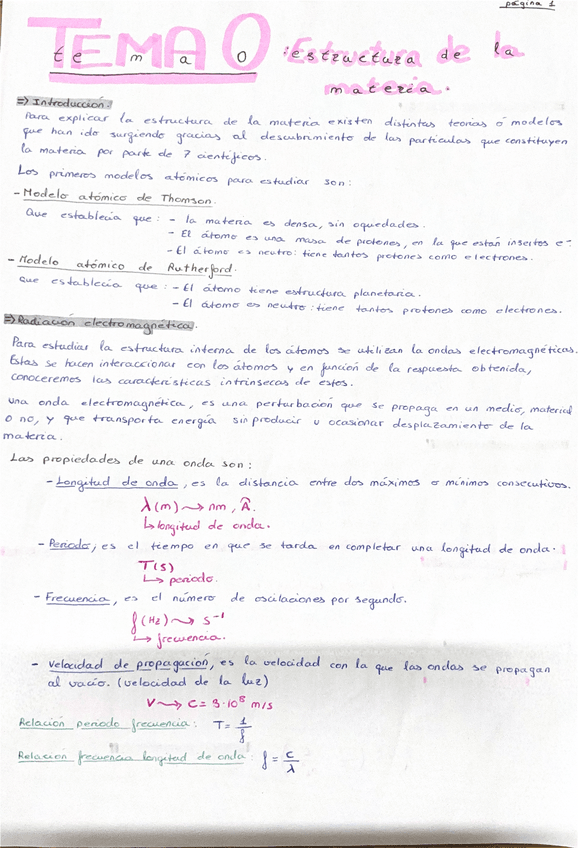 página 1
TEMA 0 : Estructura de la
te ma 0 : estructura de la
materia.
⇒ Introducción.
Para explicar la estructura de la materia existen distintas teorías ó modelos
que han ido surgiendo gracias al descubrimiento de las partículas que constituyen
la materia por parte de 7 científicos.
Los primeros modelos atómicos para estudiar son:
- Modelo atómico de Thomson.
Que establecía que: - la materia es densa, sin oquedades.
- El átomo es una masa de protones, en la que están insertos e-.
- El átomo es neutro: tiene tantos protones como electrones.
- Modelo atómico de Rutherford.
que establecía que: - El átomo tiene estructura planetaria.
- El átomo es neutro: tiene tantos protones como electrones.
⇒ Radiación electromagnética.
Para estudiar la estructura interna de los átomos se utilizan la ondas electromagnéticas.
Estas se hacen interaccionar con los átomos y en función de la respuesta obtenida,
conoceremos las características intrínsecas de estos.
una onda electromagnética, es una perturbación que se propaga en un medio, material
o no, y que transporta energía sin producir u ocasionar desplazamiento de la
materia.
Las propiedades de una onda son:
- Longitud de onda, es la distancia entre dos máximos o mínimos consecutivos.
λ(m) → nm, Å.
↳ longitud de onda.
- Periodo, es el tiempo en que se tarda en completar una longitud de onda.
T(s)
↳ periodo.
- Frecuencia, es el número de oscilaciones por segundo.
f(Hz) → s⁻¹
↳ frecuencia.
- Velocidad de propagación, es la velocidad con la que las ondas se propagan
al vacío. (velocidad de la luz)
V → c = 3·10⁸ m/s
Relación periodo frecuencia: T = 1/f
Relación frecuencia longitud de onda: f = c/λ